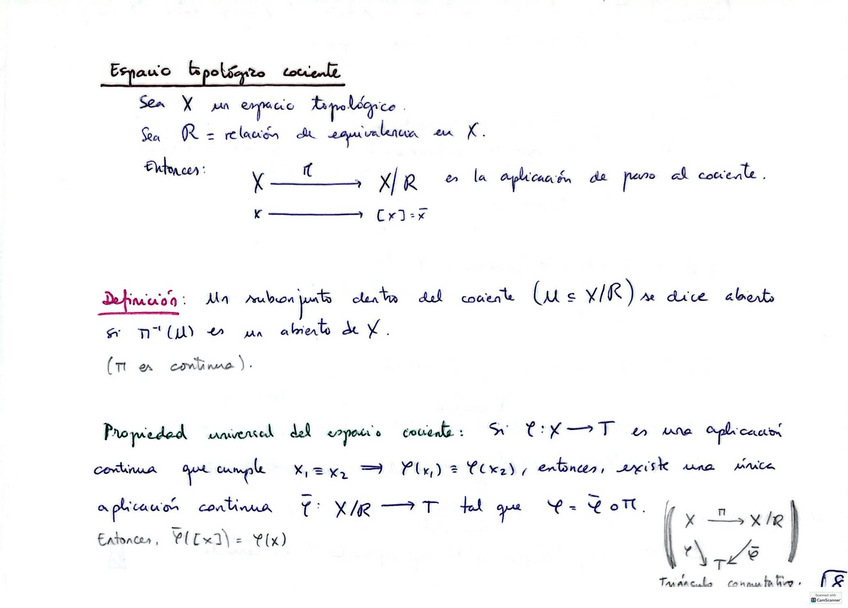 Espacio topológico cociente
Sea X un espacio topológico.
Sea R = relación de equivalencia en X.
Entonces: X —π→ X/R es la aplicación de paso al cociente.
x ⟶ [x] = x̄
Definición: Un subconjunto dentro del cociente (U ⊆ X/R) se dice abierto
si π⁻¹(U) es un abierto de X.
(π es continua).
Propiedad universal del espacio cociente: Si φ: X ⟶ T es una aplicación
continua que cumple x₁ ≡ x₂ ⟹ φ(x₁) ≡ φ(x₂), entonces, existe una única
aplicación continua φ̄: X/R ⟶ T tal que φ = φ̄ ∘ π.
Entonces, φ̄([x]) = φ(x)
X —π→ X/R
φ ↘ T ↙ φ̄
Triángulo conmutativo.
18
Scanned with
CamScanner